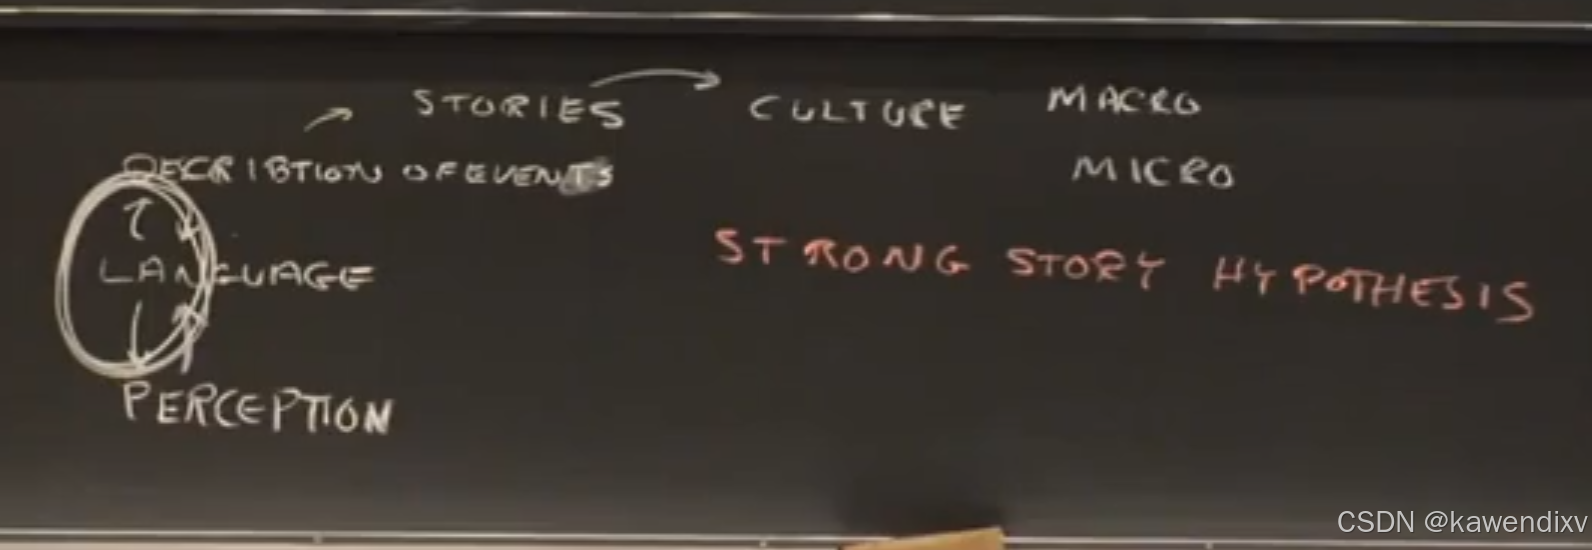 STORIES CULTURE MACRO
DECRIBTION OF EVENTS MICRO
LANGUAGE STRONG STORY HYPOTHESIS
PERCEPTION
CSDN @kawendixv